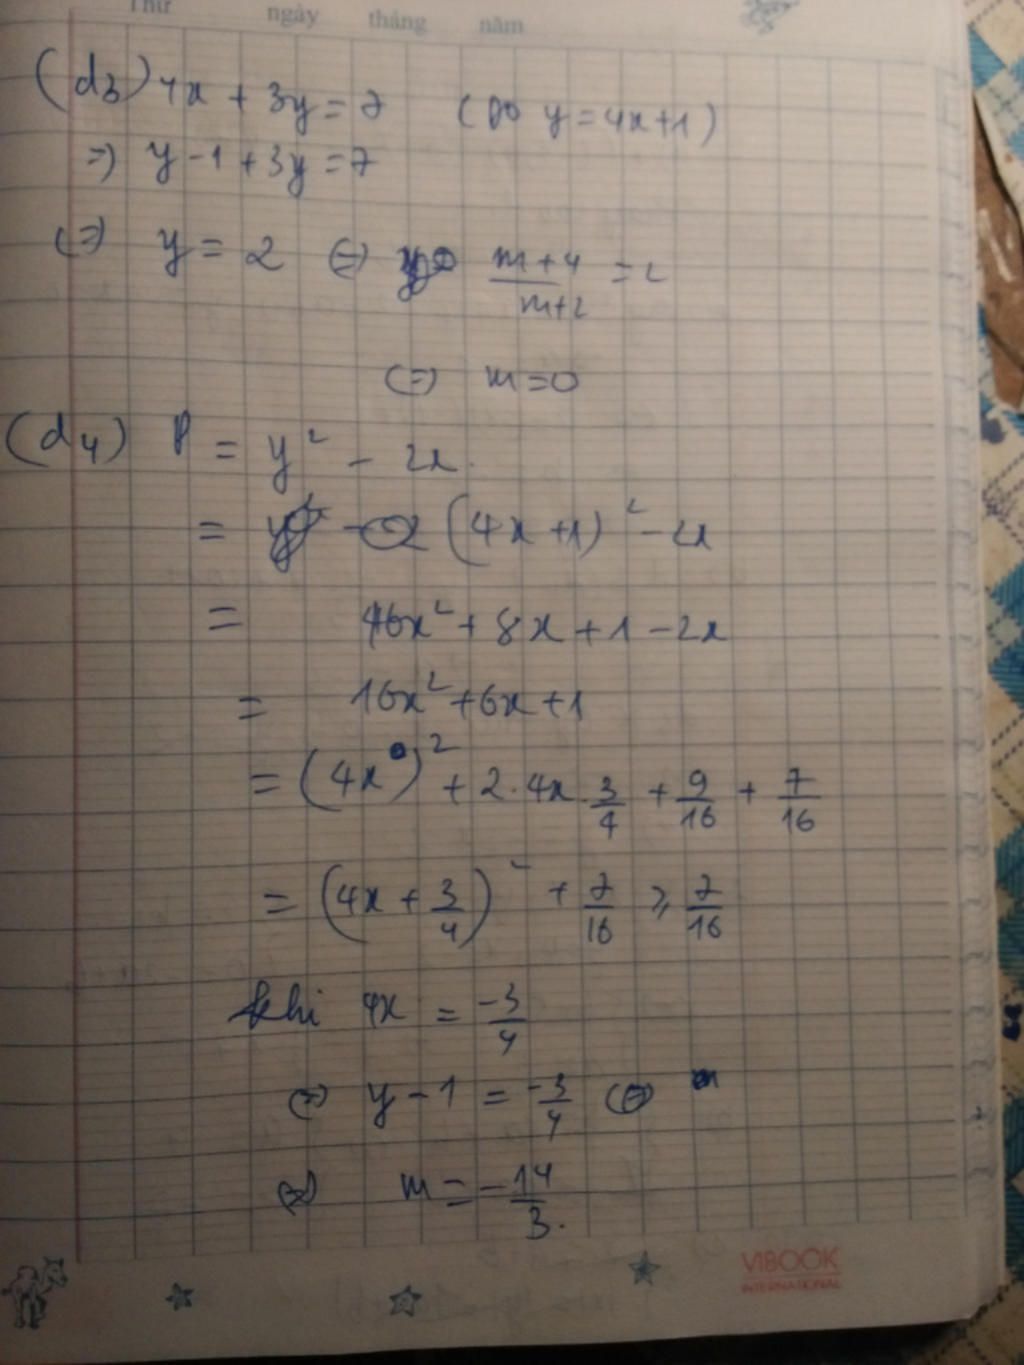 Thứ ngày tháng năm
(d3) 4x + 3y = 7 (Do y = 4x+1)
=) y - 1 + 3y = 7
(=) y = 2 (=) m+4/m+2 = 2
(=) m = 0
(d4) P = y² - 2x
= (4x+1)² - 2x
= 16x² + 8x + 1 - 2x
= 16x² + 6x + 1
= (4x)² + 2.4x.3/4 + 9/16 + 7/16
= (4x + 3/4)² + 7/16 ⩾ 7/16
khi 4x = -3/4
(=) y - 1 = -3/4 (=)
(=) m = -14/3.
VIBOOK
INTERNATIONAL